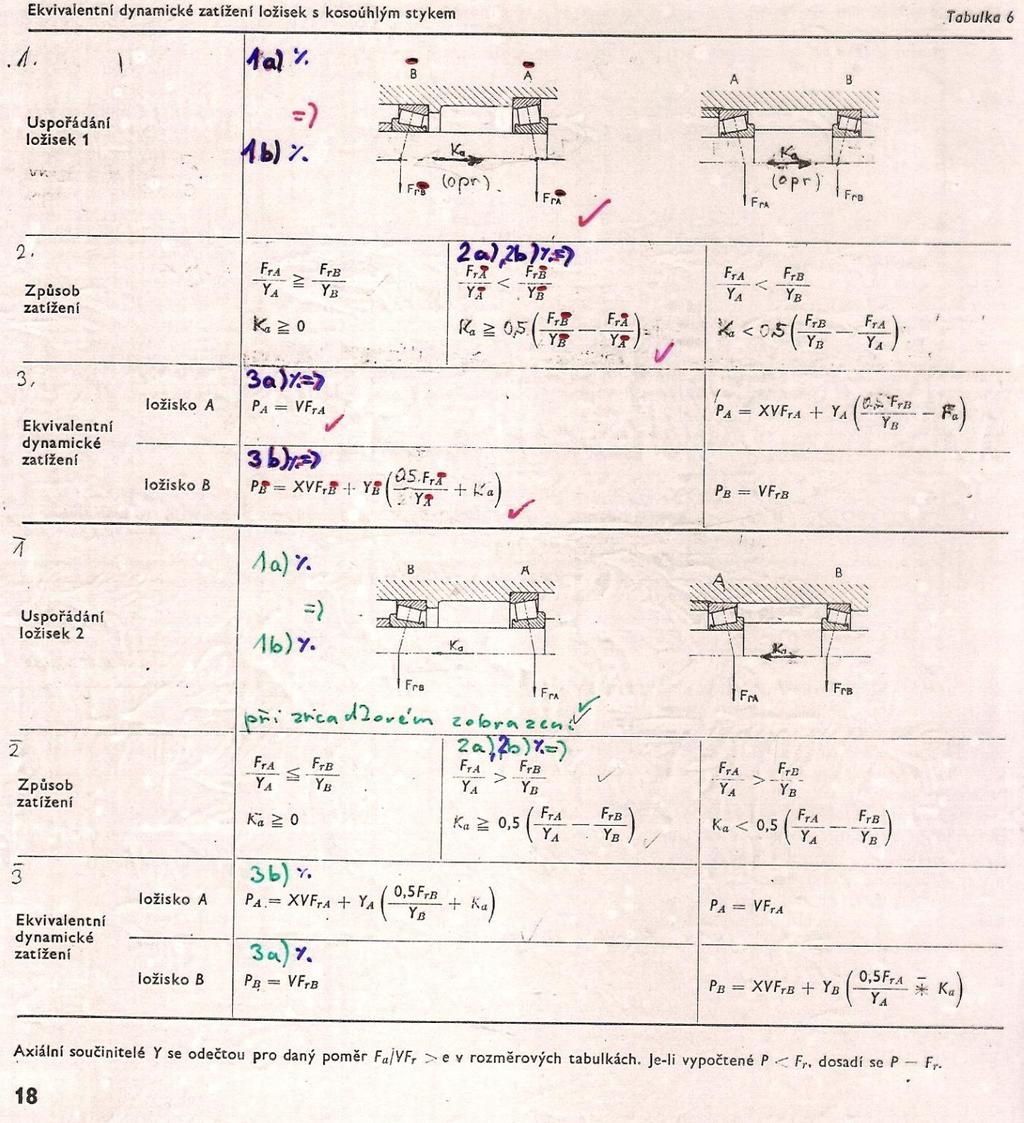 Ekvivalentní dynamické zatížení ložisek s kosoúhlým stykem
Tabulka 6
1.
Uspořádání
ložisek 1
1a) %.
=>
1b) %.
B A
Ka
(opr)
FrB FrA
A B
Ka
(opr)
FrA FrB
2.
Způsob
zatížení
FrA/YA ≧ FrB/YB
Ka ≧ 0
2a), 2b) %=>
FrA/YA < FrB/YB
Ka ≧ 0,5 (FrB/YB — FrA/YA)
FrA/YA < FrB/YB
Ka < 0,5 (FrB/YB — FrA/YA)
3.
Ekvivalentní
dynamické
zatížení
ložisko A
3a) %=>
PA = VFrA
PA = XVFrA + YA (0,5 FrB/YB — Fa)
ložisko B
3b) %=>
PB = XVFrB + YB (0,5.FrA/YA + Ka)
PB = VFrB
1
Uspořádání
ložisek 2
1a) %.
=>
1b) %.
B A
Ka
FrB FrA
při zrcadlovém zobrazení
A B
Ka
FrA FrB
2
Způsob
zatížení
FrA/YA ≦ FrB/YB
Ka ≧ 0
2a), 2b) %=>
FrA/YA > FrB/YB
Ka ≧ 0,5 (FrA/YA — FrB/YB)
FrA/YA > FrB/YB
Ka < 0,5 (FrA/YA — FrB/YB)
3
Ekvivalentní
dynamické
zatížení
ložisko A
3b) %.
PA = XVFrA + YA (0,5FrB/YB + Ka)
PA = VFrA
ložisko B
3a) %.
PB = VFrB
PB = XVFrB + YB (0,5FrA/YA - Ka)
Axiální součinitelé Y se odečtou pro daný poměr Fa/VFr > e v rozměrových tabulkách. Je-li vypočtené P < Fr, dosadí se P — Fr.
18